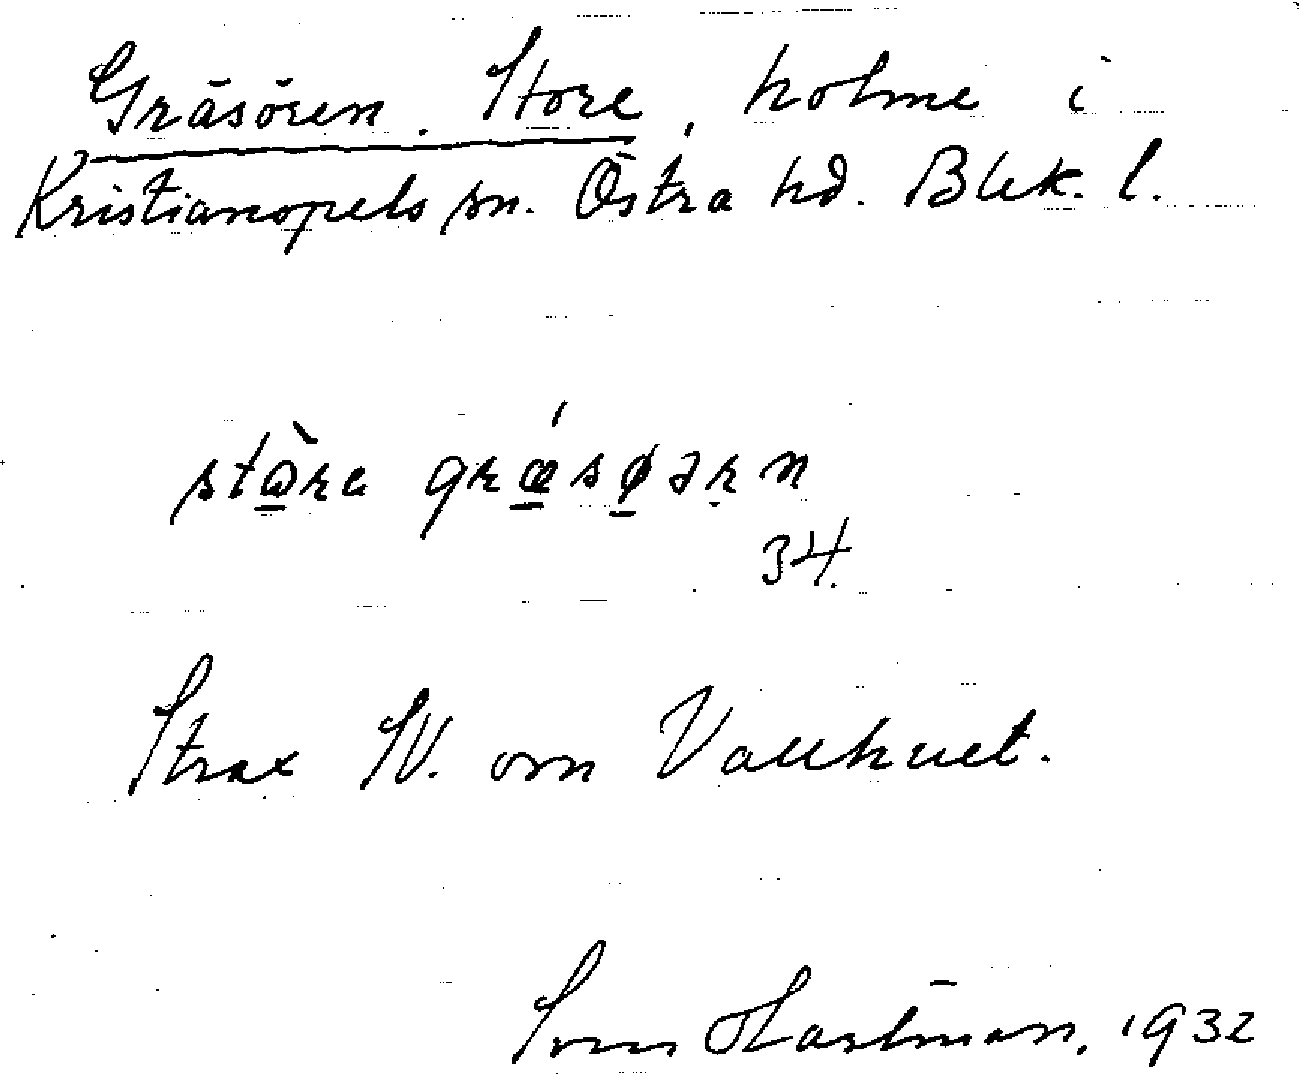 Gräsören, Store, holme i
Kristianopels sn. Östra hd. Blek. l.
stὼra grǽsø̱ərn
34.
Strax SV. om Vallhuet.
Sven Hartman, 1932